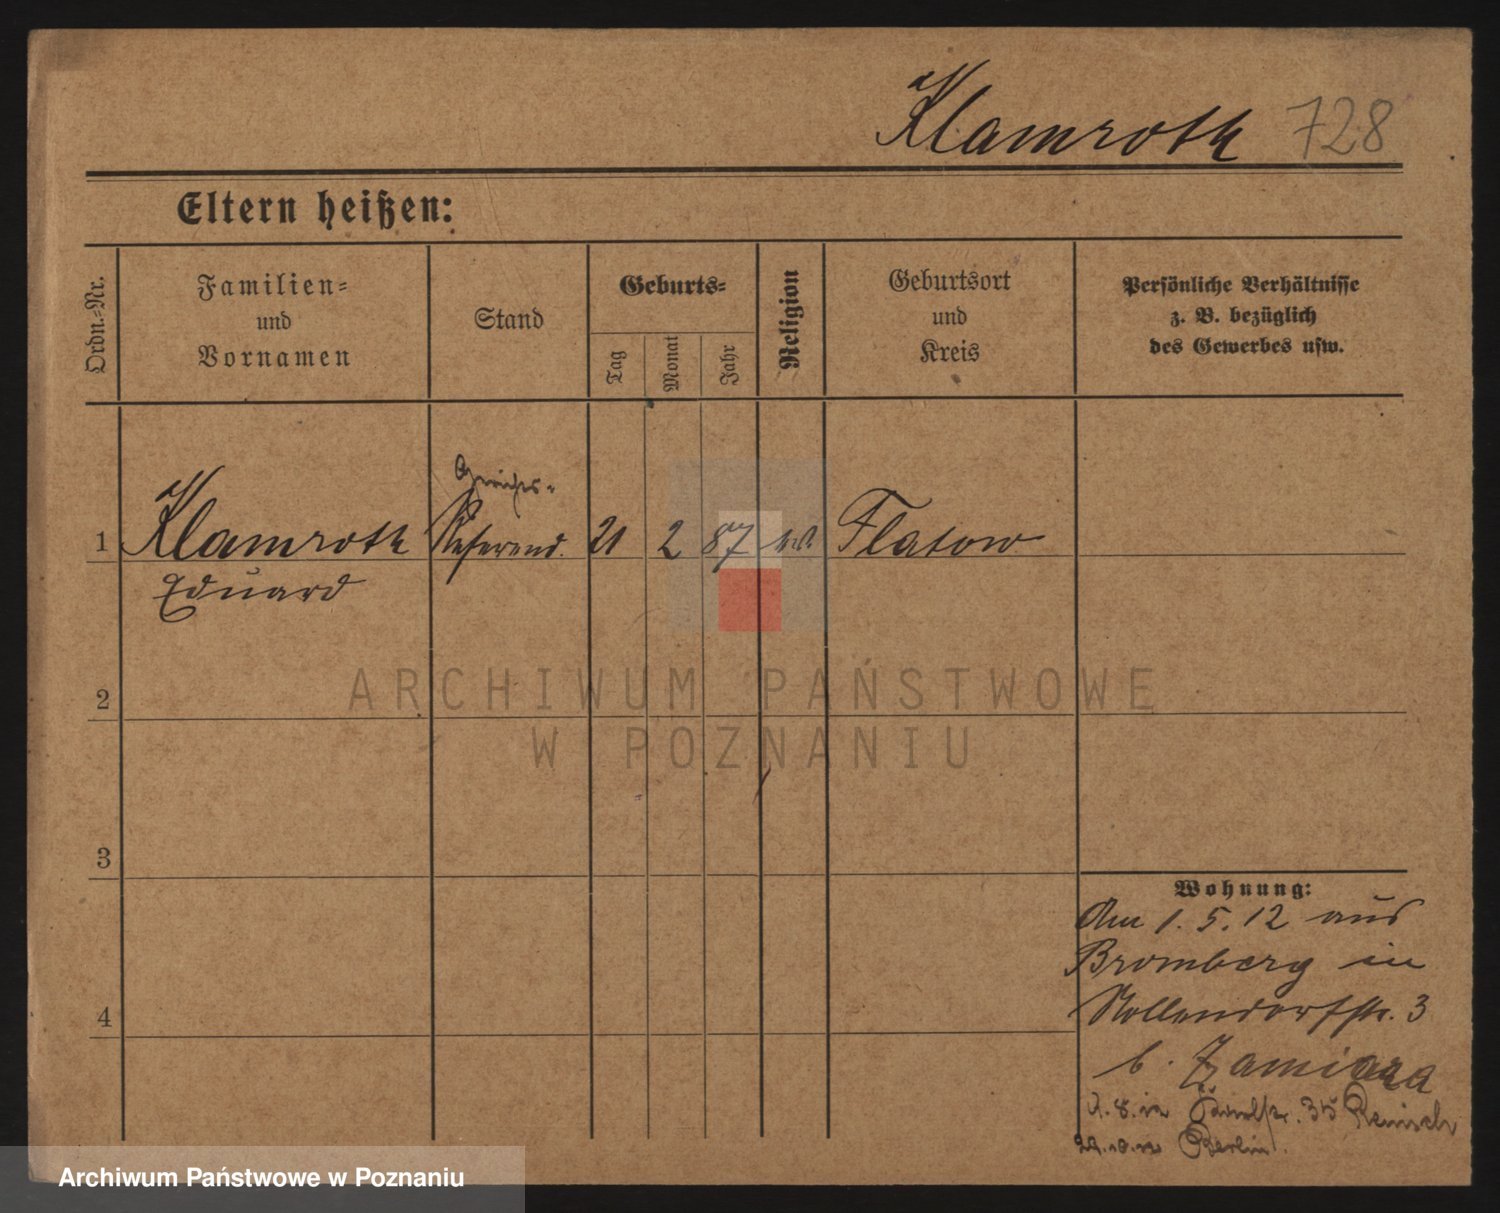 Klamroth 728
Eltern heißen:
Ordn.-Nr.
Familien-
und
Vornamen
Stand
Geburts-
Tag
Monat
Jahr
Religion
Geburtsort
und
Kreis
Persönliche Verhältnisse
z. B. bezüglich
des Gewerbes usw.
Gerichts-
1 Klamroth Referend. 21 2 87 Flatow
Eduard
2
3
4
Wohnung:
Am 1. 5. 12 aus
Bromberg in
Nollendorfstr. 3
b.
1. 8. 12 35
29. 10. 12 Berlin.
ARCHIWUM PAŃSTWOWE
W POZNANIU
Archiwum Państwowe w Poznaniu